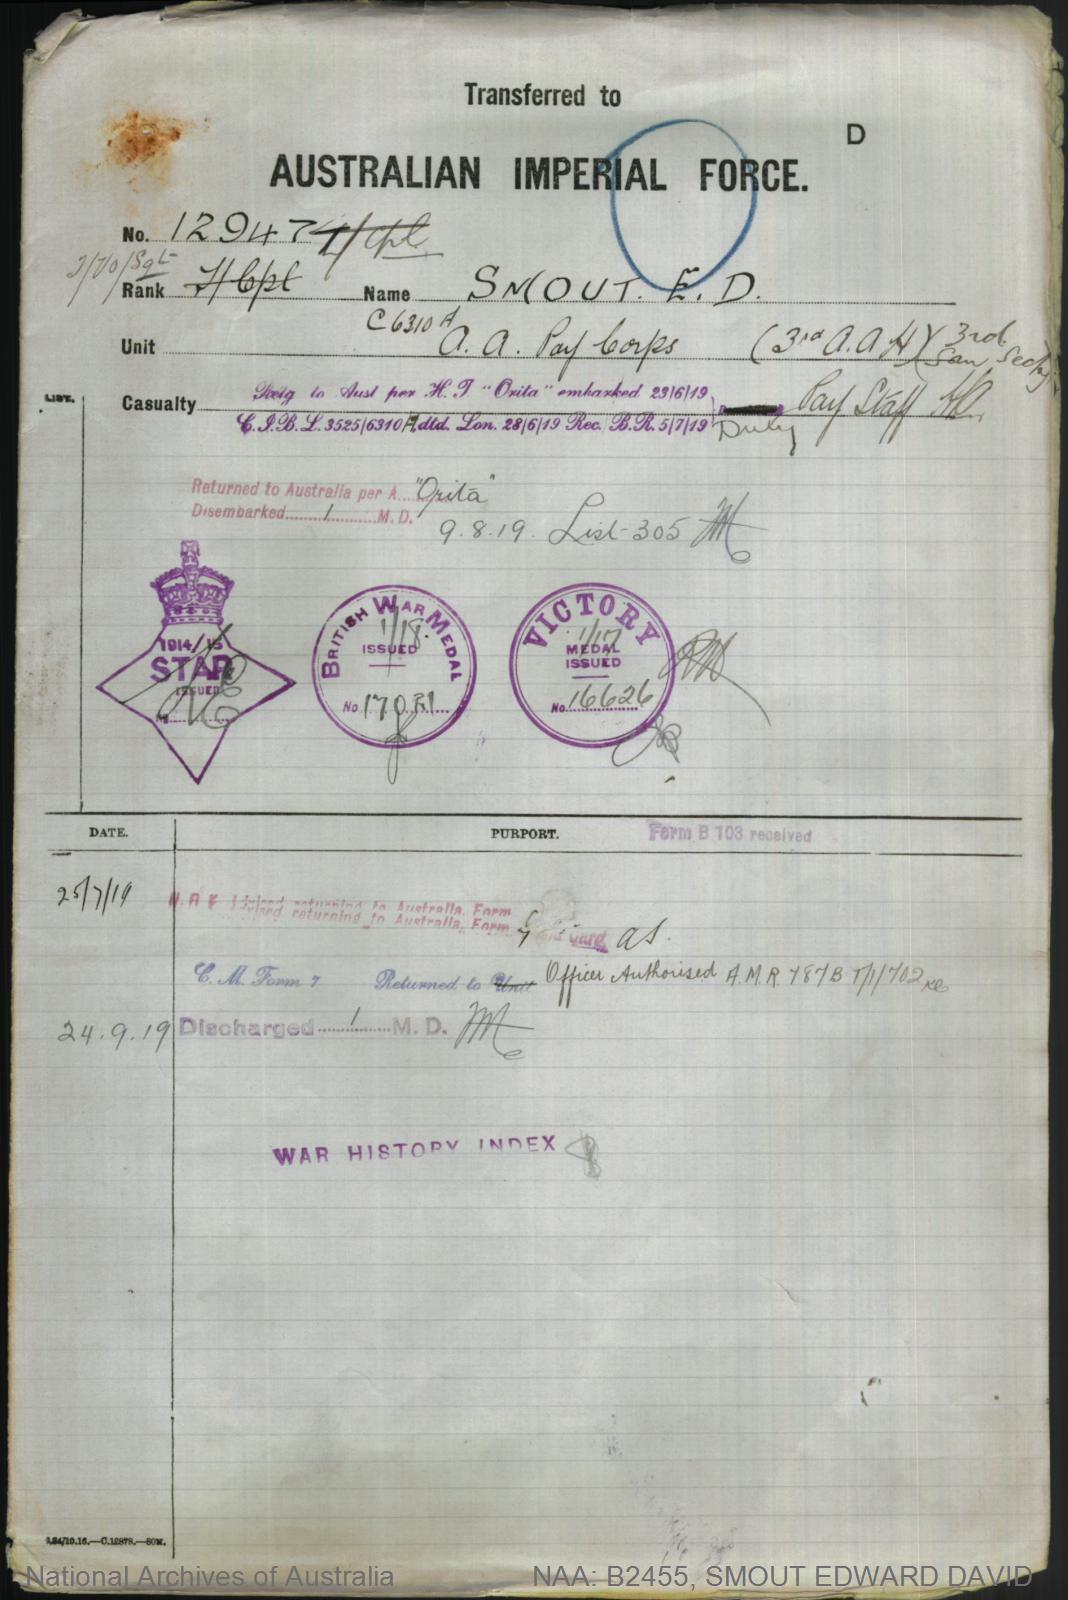 Transferred to
D
AUSTRALIAN IMPERIAL FORCE.
No. 12947 T/Cpl
T/VO/Sgt
Rank Name SMOUT. E. D.
C 6310 A
Unit A. A. Pay Corps (3rd A.A.H) (3rd San. Sect)
LIST.
Casualty Retg to Aust per H. T. "Orita" embarked 23/6/19 Pay Staff
C.I.B.L. 3525/6310 A dtd. Lon. 28/6/19 Rec. B.R. 5/7/19 Duty
Returned to Australia per A "Orita"
Disembarked 1 M. D. 9.8.19. List 305
1914/15 STAR ISSUED
BRITISH WAR MEDAL 1/18 ISSUED No. 17031
VICTORY MEDAL ISSUED 1/17 No. 16626
DATE. PURPORT. Form B 103 received
25/7/19 N.O.K. Advised returning to Australia. Form
Advised returning to Australia. Form Card as.
C. M. Form 7 Returned to Unit Officer Authorised A.M.R. 787B T/1/702
24.9.19 Discharged 1 M. D.
WAR HISTORY INDEX
1.24/10.16.—C.12878.—50M.
National Archives of Australia NAA: B2455, SMOUT EDWARD DAVID